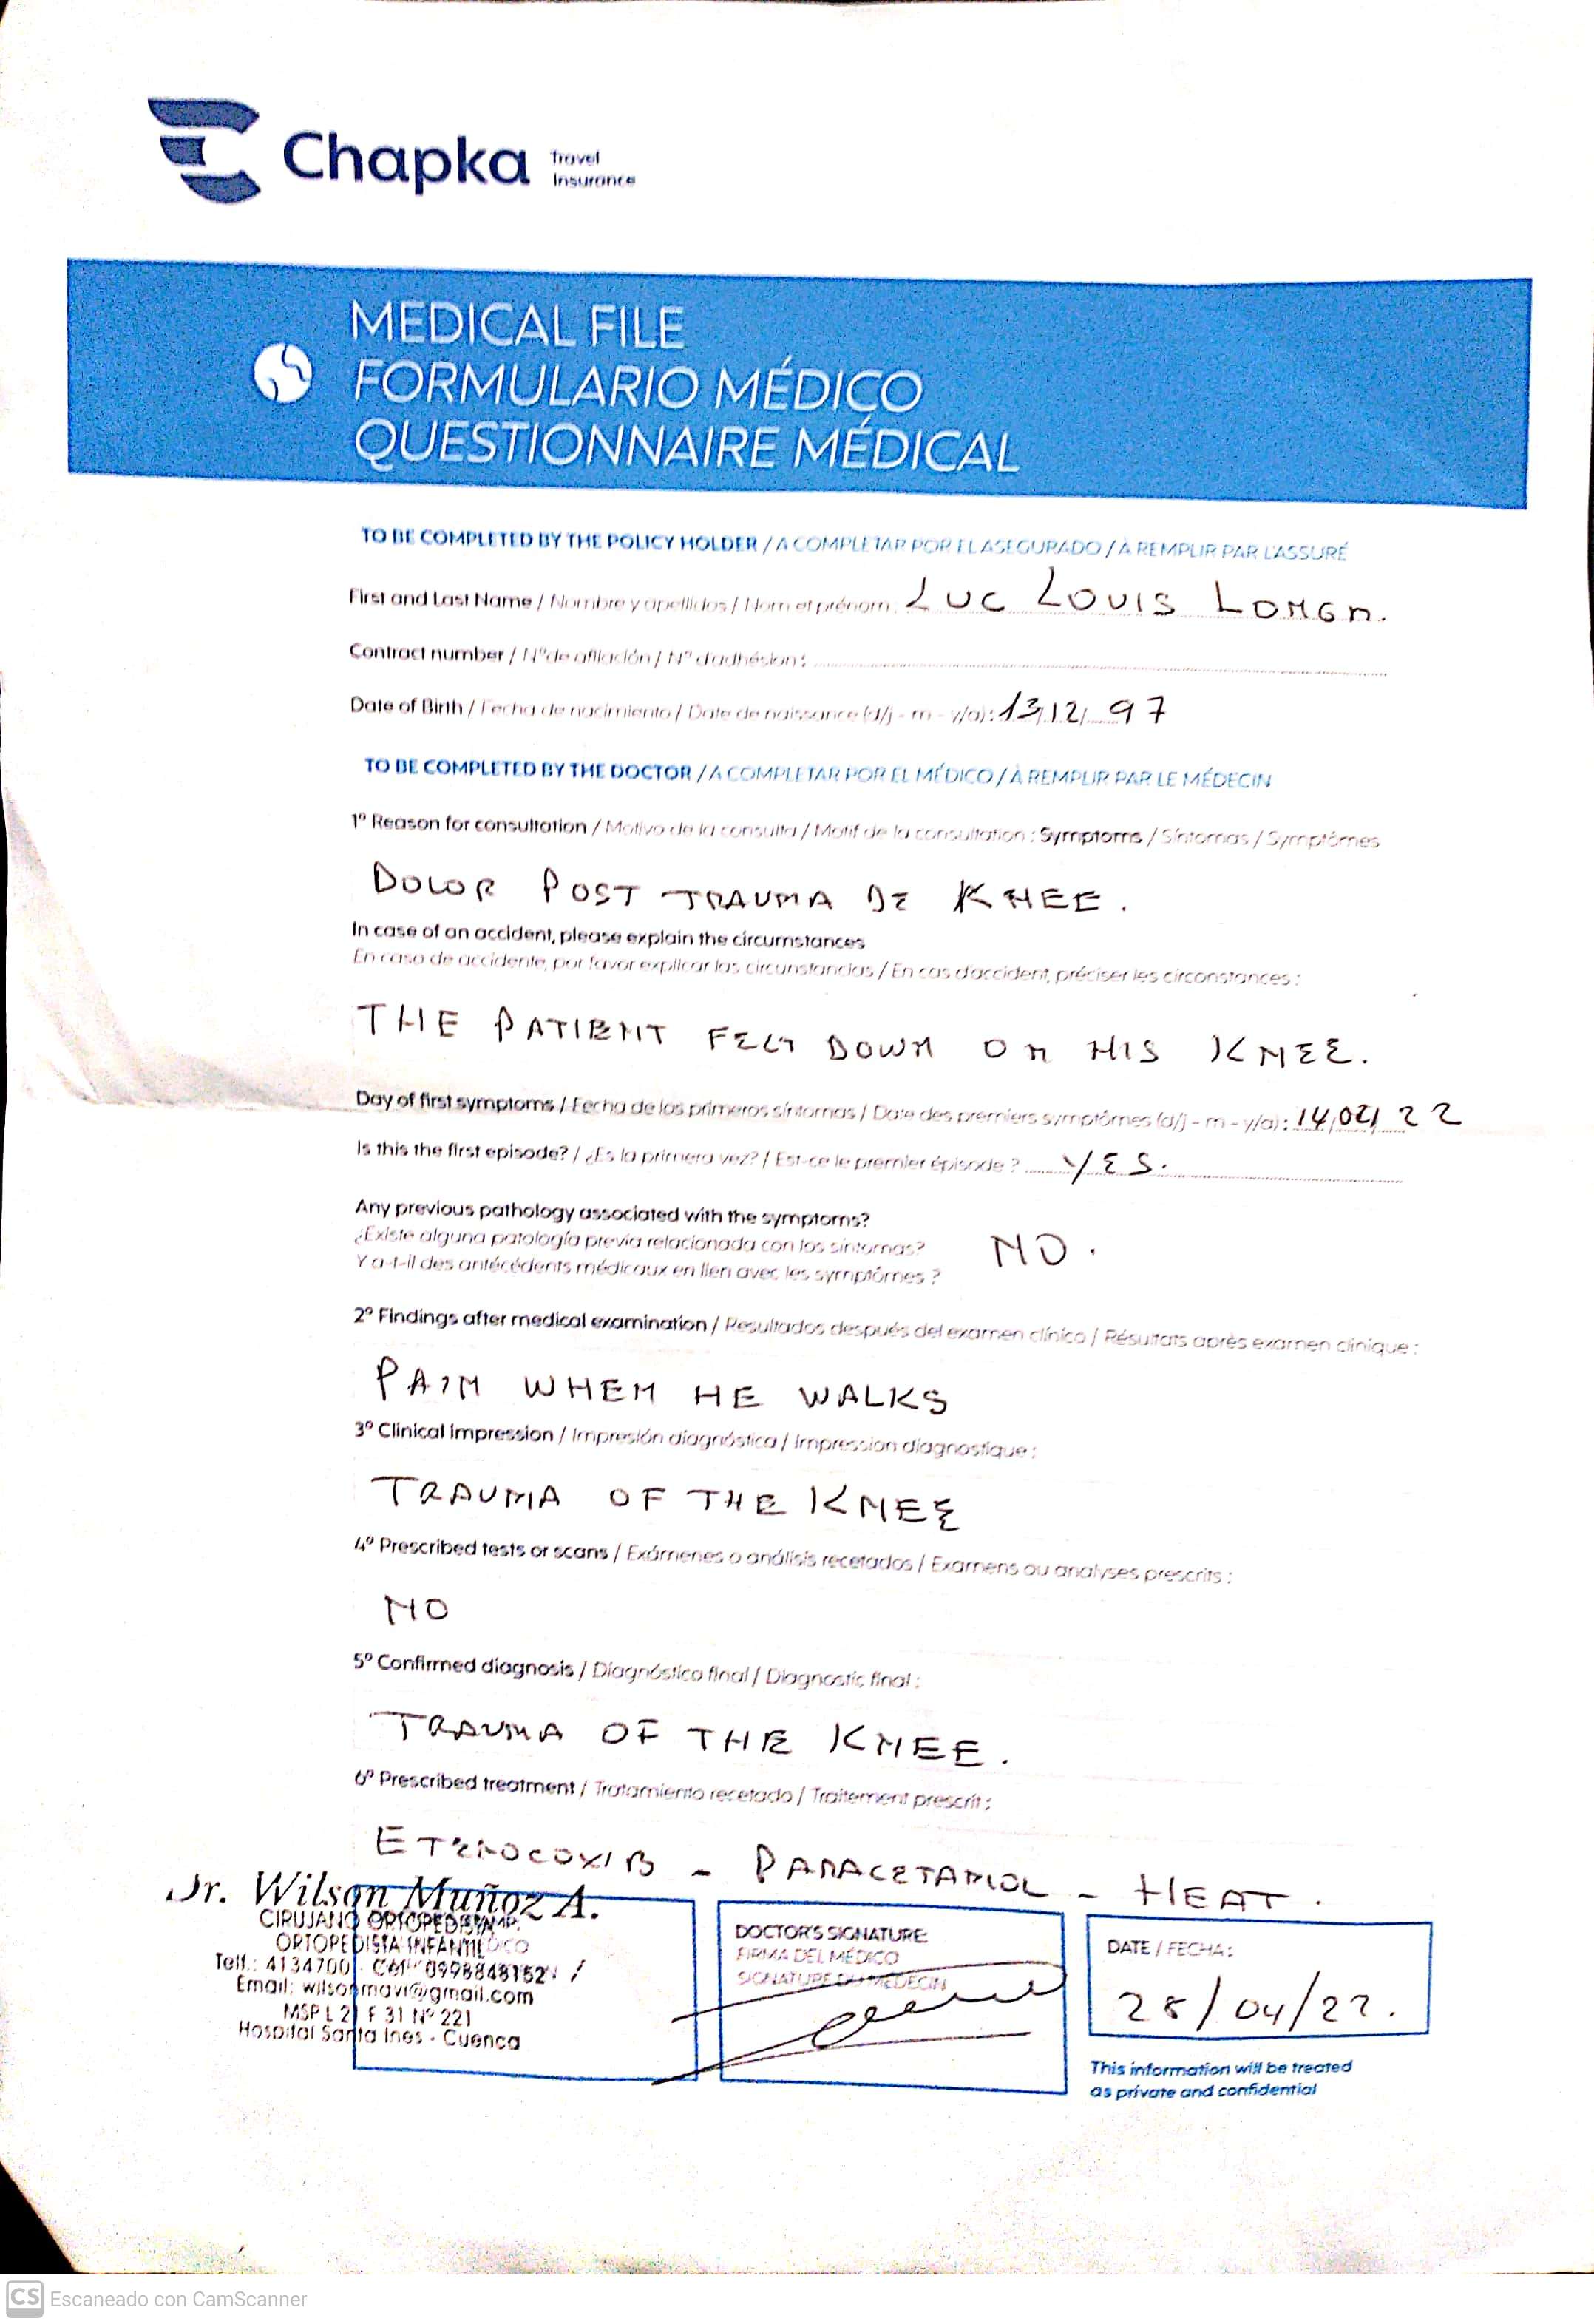 Chapka Travel Insurance
MEDICAL FILE
FORMULARIO MÉDICO
QUESTIONNAIRE MÉDICAL
TO BE COMPLETED BY THE POLICY HOLDER / A COMPLETAR POR EL ASEGURADO / À REMPLIR PAR L'ASSURÉ
First and Last Name / Nombre y apellidos / Nom et prénom : LUC LOUIS
Contract number / N° de afiliación / N° d'adhésion :
Date of Birth / Fecha de nacimiento / Date de naissance (d/j - m - y/a) : 13/12/ 97
TO BE COMPLETED BY THE DOCTOR / A COMPLETAR POR EL MÉDICO / À REMPLIR PAR LE MÉDECIN
1º Reason for consultation / Motivo de la consulta / Motif de la consultation : Symptoms / Síntomas / Symptômes
DOLOR POST TRAUMA DE KNEE.
In case of an accident, please explain the circumstances
En caso de accidente, por favor explicar las circunstancias / En cas d'accident, préciser les circonstances :
THE PATIENT FELT DOWN ON HIS KNEE.
Day of first symptoms / Fecha de los primeros síntomas / Date des premiers symptômes (d/j - m - y/a) : 14/ 22
Is this the first episode? / ¿Es la primera vez? / Est-ce le premier épisode ? YES.
Any previous pathology associated with the symptoms?
¿Existe alguna patología previa relacionada con los síntomas? NO.
Y a-t-il des antécédents médicaux en lien avec les symptômes ?
2º Findings after medical examination / Resultados después del examen clínico / Résultats après examen clinique :
PAIN WHEN HE WALKS
3º Clinical impression / Impresión diagnóstica / Impression diagnostique :
TRAUMA OF THE KNEE
4º Prescribed tests or scans / Exámenes o análisis recetados / Examens ou analyses prescrits :
NO
5º Confirmed diagnosis / Diagnóstico final / Diagnostic final :
TRAUMA OF THE KNEE.
6º Prescribed treatment / Tratamiento recetado / Traitement prescrit :
ETEROCOXIB - PARACETAMOL - HEAT.
Dr. Wilson Muñoz A.
CIRUJANO ORTOPEDISTA
ORTOPEDISTA INFANTIL
Telf.: 4134700 Cel: 0998848152
Email: wilsonmavi@gmail.com
MSP L 21 F 31 Nº 221
Hospital Santa Ines - Cuenca
DOCTOR'S SIGNATURE:
FIRMA DEL MÉDICO
SIGNATURE DU MÉDECIN
DATE / FECHA :
28/04/22.
This information will be treated
as private and confidential
CS Escaneado con CamScanner